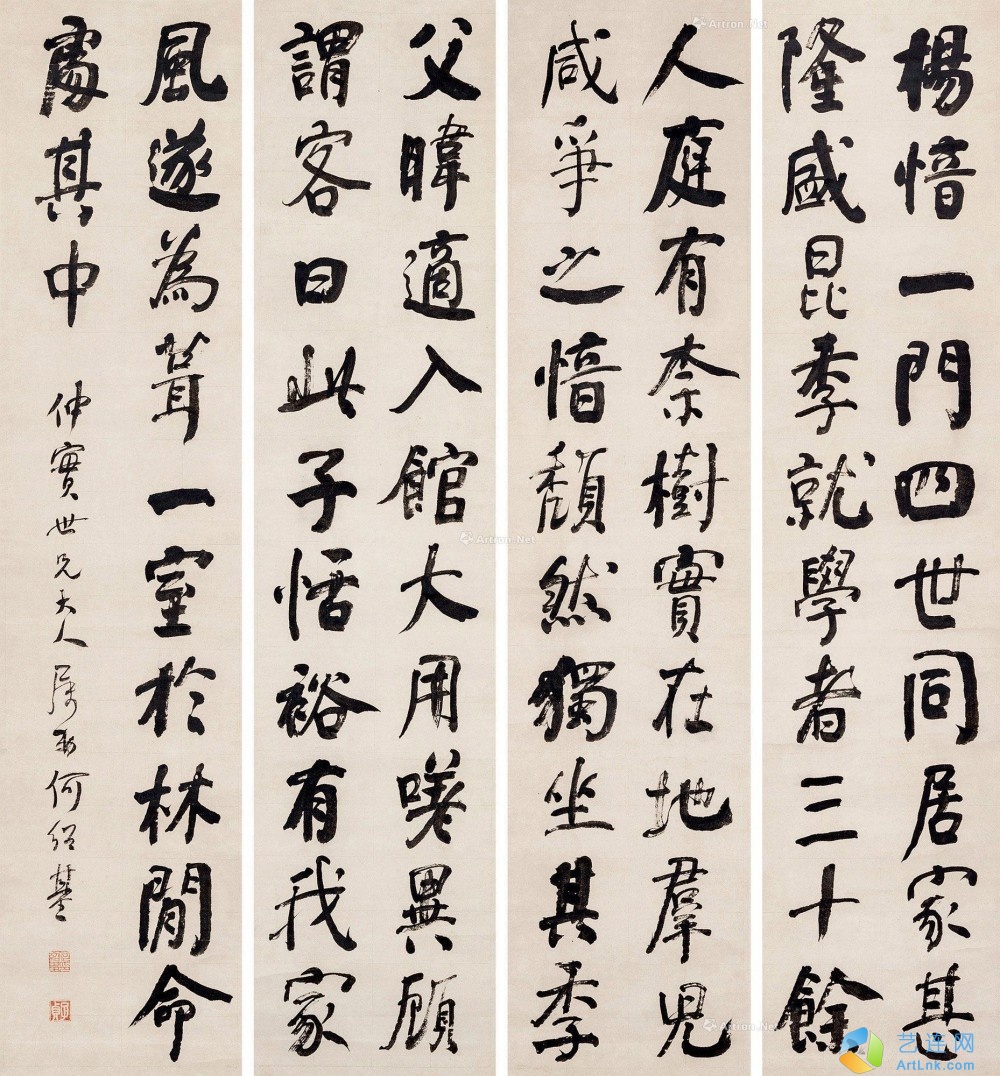 楊愔一門四世同居家甚
隆盛昆季就學者三十餘
人庭有柰樹實在地羣児
咸爭之愔頹然獨坐其季
父暐適入館大用嗟異顧
謂客曰此子恬裕有我家
風遂為葺一室於林閒命
處其中
仲實世兄大人屬 何紹基
Artron.Net
Artron.Net
Artron.Net
艺连网
ArtLnk.com